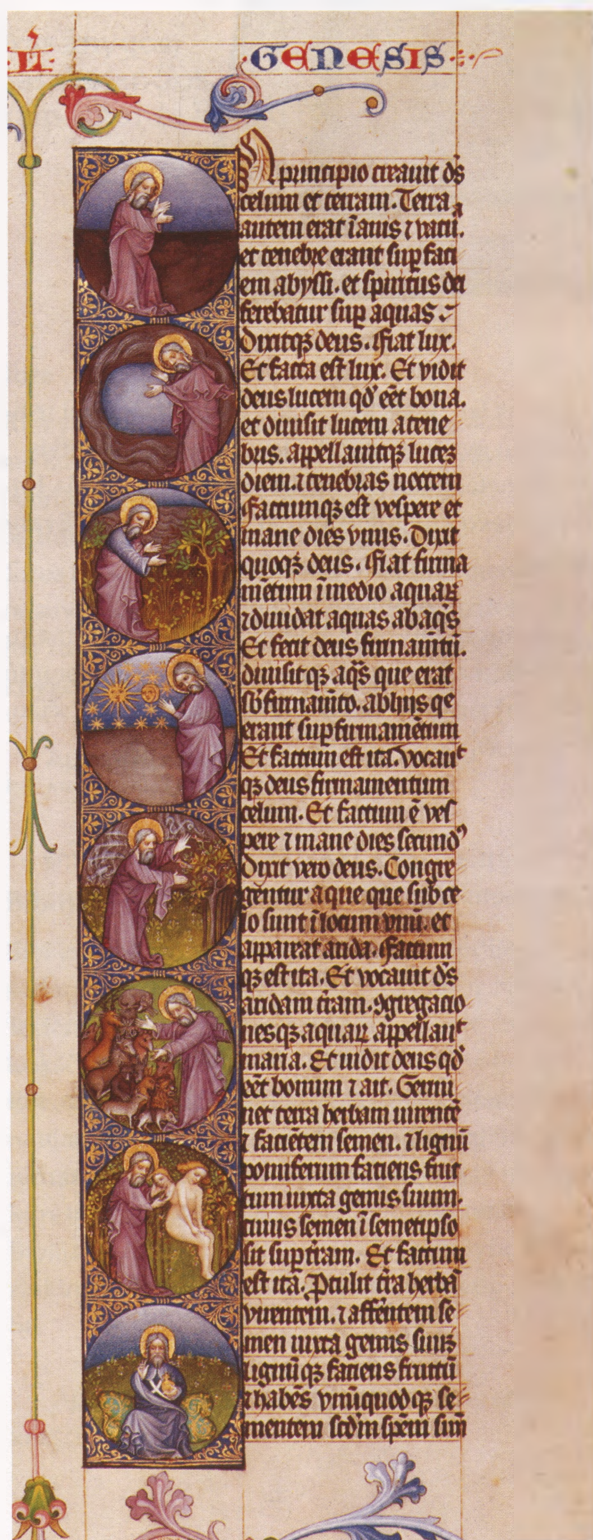 GENESIS
In principio creauit dś
celum et terram. Terra
autem erat īanis ⁊ vacū.
et tenebre erant suꝑ faci
em abyssi. et spiritus dei
ferebatur suꝑ aquas
Dixitqꝫ deus. Fiat lux.
Et facta est lux. Et vidit
deus lucem qđ eēt bona.
et diuisit lucem a tene
bris. appellauitqꝫ luceꝫ
diem. ⁊ tenebras noctem
Factumqꝫ est vespere et
mane dies vnus. Dixit
quoqꝫ deus. Fiat firma
mētum ī medio aquaꝝ
⁊ diuidat aquas ab aqˢ
Et fecit deus firmamētū.
diuisitqꝫ aqˢ que erāt
sb̄ firmamēto. ab hijs qe
erant suꝑ firmamētum
Et factum est ita. vocauiᵗ
qꝫ deus firmamentum
celum. Et factum ē ves
pere ⁊ mane dies secundꝰ
Dixit vero deus. Congre
gentur aque que sub ce
lo sunt ī locum vnū. et
appareat arida. Factum
qꝫ est ita. Et vocauit dś
aridam t̄ram. ꝯgregacio
nesqꝫ aquaꝝ appellauiᵗ
maria. Et uidit deus qđ
eēt bonum ⁊ ait. Germi
net terra herbam uirentē
⁊ faciētem semen. ⁊ lignū
pomiferum faciens fruc
tum iuxta genus suum.
cuius semen ī semetipso
sit suꝑ t̄ram. Et factum
est ita. Ꝓtulit t̄ra herbā
virentem. ⁊ afferētem se
men iuxta genus suuꝫ
lignūqꝫ faciens fructū
⁊ habēs vnūquodqꝫ se
mentem scd̄m spēm suā